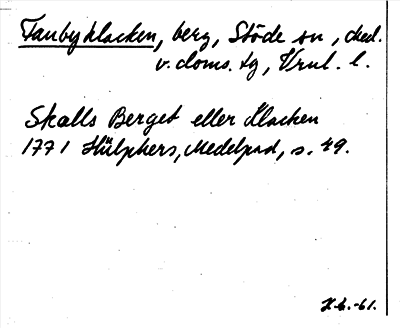 Fanbyklacken, berg, Stöde sn, Med.
v. doms. tg, Vrnl. l.
Skalls Berget eller Klacken
1771 Hülphers, Medelpad, s. 49.
-61.